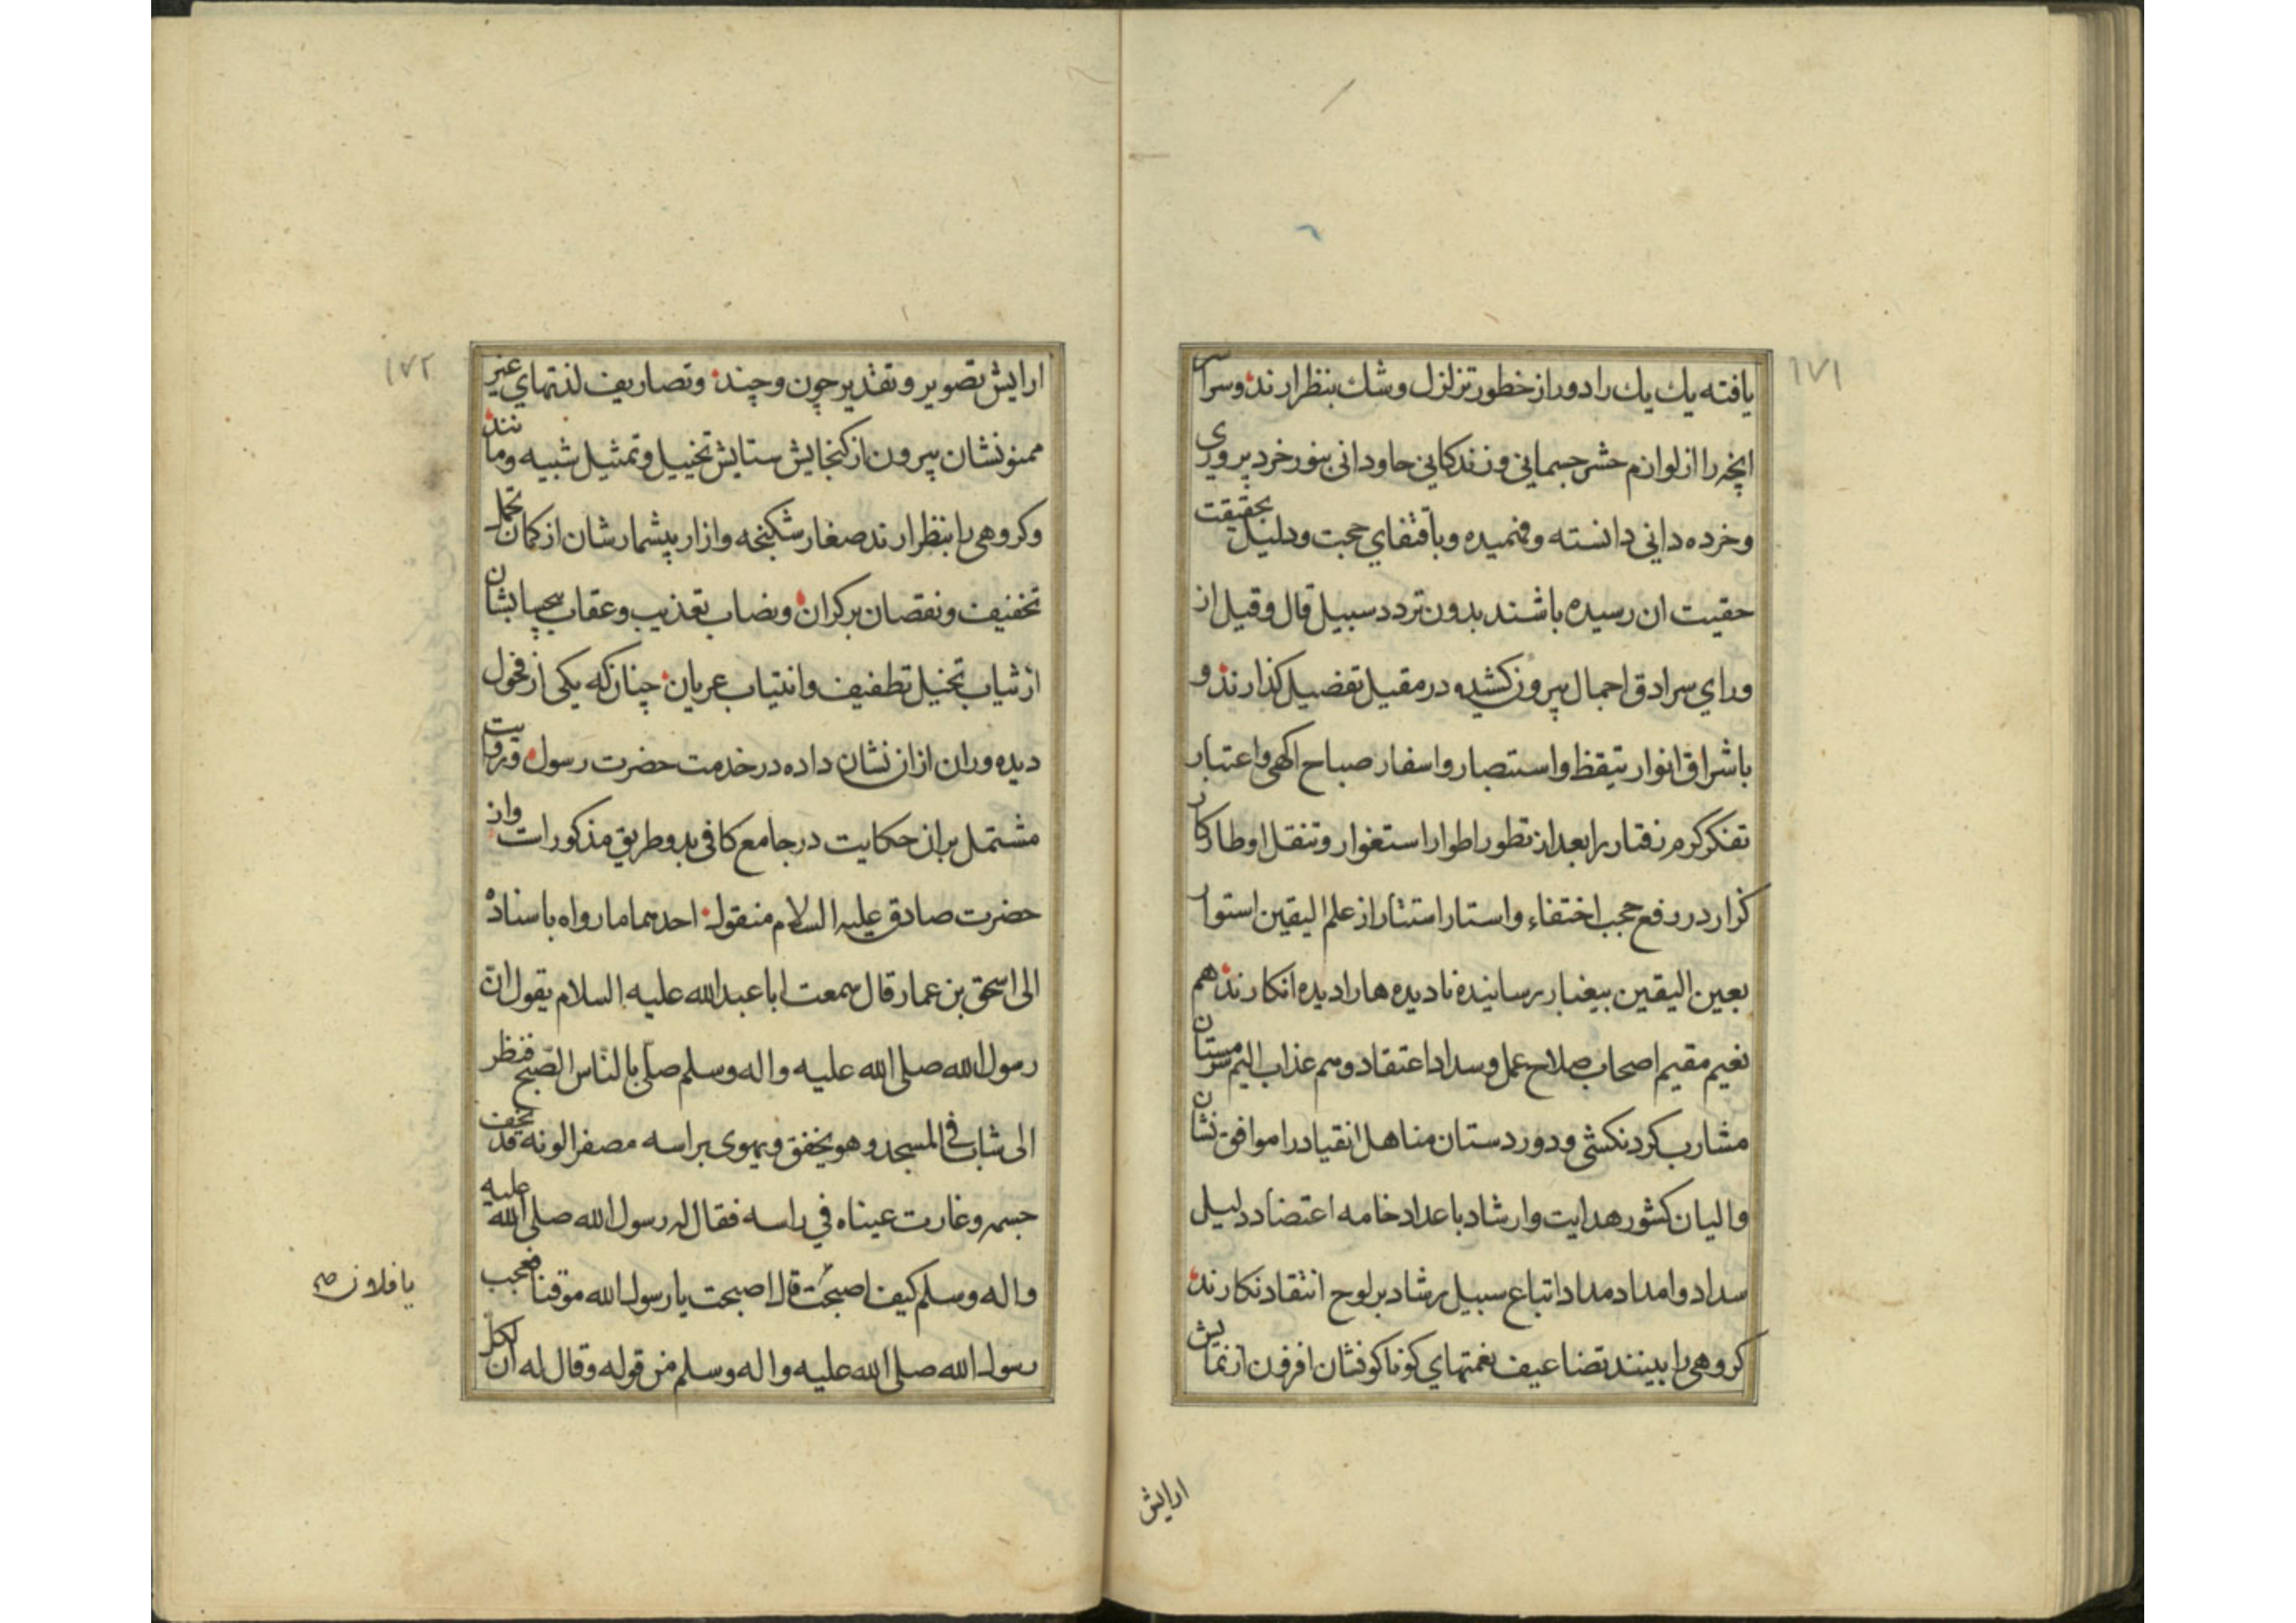 ١٧١
یافته یك یك را دور از خطور تزلزل وشك بنظر ارند وسراسر
انچه را از لوازم حشر جسمانی و زندکانی جاودانی بنور خرد پروری
وخرده دانی دانسته وفهمیده وباقتفای حجت ودلیل بحقیقت
حقیت ان رسیده باشند بدون تردد سبیل قال وقیل از
ورای سرادق اجمال بیرون کشیده در مقیل تفضیل کذارند و
باشراق انوار تیقظ واستبصار واسفار صباح اکهی واعتبار
تفکر کرم رفتار را بعد از تطور اطوار استغوار وتنقل اوطار کار
کزار در رفع حجب اختفاء واستار استتار از علم الیقین استوار
بعین الیقین بیغبار رسانیده نادیده ها را دیده انکارند هم
نعیم مقیم اصحاب صلاح عمل وسداد اعتقاد وهم عذاب الیم سرمستان
مشارب کردنکشی ودوردستان مناهل انقیاد را موافق نشان
والیان کشور هدایت وارشاد باعداد خامه اعتضاد دلیل
سداد وامداد مداد اتباع سبیل رشاد بر لوح انتقاد نکارند
کروهی را ببینند تضاعیف نعمتهای کوناکونشان افزون از نمایش
ارایش
١٧٢
ارایش تصویر وتقدیر چون وچند وتصاریف لذتهای غیر
ممنونشان بیرون از کنجایش ستایش تخییل وتمثیل شبیه ومانند
وکروهی را بنظر ارند صغار شکنجه وازار بیشمارشان از کمان تحمل
تخفیف ونقصان برکران ونصاب تعذیب وعقاب بیحسابشان
از ثیاب تخیل تطفیف وانتیاب عریان چنانکه یکی از فحول
دیده وران ازان نشان داده در خدمت حضرت رسول وروایت
مشتمل بران حکایت در جامع کافی بدو طریق مذکور است واز
حضرت صادق علیه السلام منقول احدهما ما رواه باسناده
الی اسحق بن عمار قال سمعت ابا عبد الله علیه السلام یقول ان
رسول الله صلی الله علیه واله وسلم صلّی بالنّاس الصّبح فنظر
الی شاب فی المسجد وهو یخفق ویهوی براسه مصفرا لونه قد نحف
جسمه وغارت عیناه فی راسه فقال له رسول الله صلی الله علیه
واله وسلم کیف اصبحت قال اصبحت یا رسول الله موقنا فعجب
یا فلان صح
رسول الله صلی الله علیه واله وسلم من قوله وقال له ان لکل